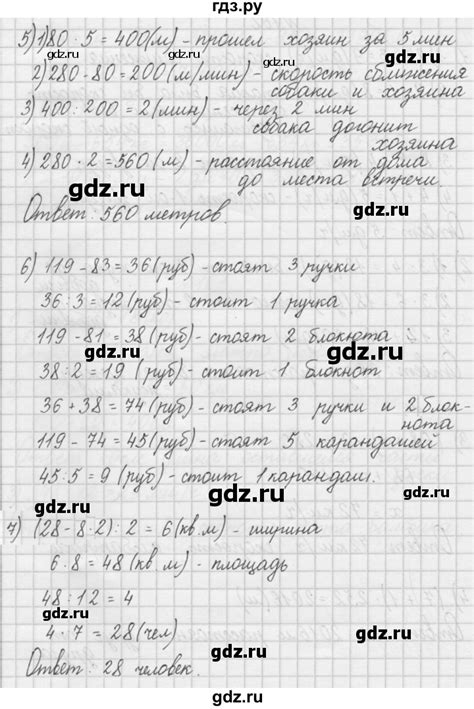 гдз.ру
5) 1) 80 · 5 = 400 (м) - прошел хозяин за 5 мин
2) 280 - 80 = 200 (м/мин) - скорость сближения
собаки и хозяина
3) 400 : 200 = 2 (мин) - через 2 мин
собака догонит
хозяина
4) 280 · 2 = 560 (м) - расстояние от дома
до места встречи.
gdz.ru
gdz.ru
Ответ: 560 метров.
gdz.ru
6) 119 - 83 = 36 (руб) - стоят 3 ручки
gdz.ru
36 : 3 = 12 (руб) - стоит 1 ручка
gdz.ru
119 - 81 = 38 (руб) - стоят 2 блокнота
gdz.ru
gdz.ru
38 : 2 = 19 (руб) - стоит 1 блокнот
36 + 38 = 74 (руб) - стоят 3 ручки и 2 блок-
нота
gdz.ru
119 - 74 = 45 (руб) - стоят 5 карандашей
45 : 5 = 9 (руб) - стоит 1 карандаш.
gdz.ru
gdz.ru
7) (28 - 8 · 2) : 2 = 6 (кв. м) - ширина
gdz.ru
6 · 8 = 48 (кв. м) - площадь
gdz.ru
48 : 12 = 4
gdz.ru
gdz.ru
4 · 7 = 28 (чел)
Ответ: 28 человек.
gdz.ru
gdz.ru